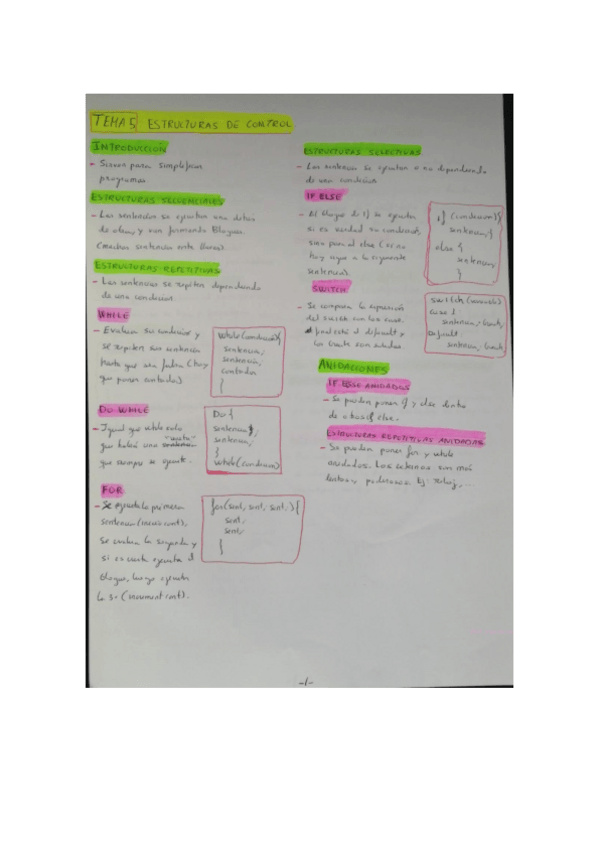 TEMA 5 ESTRUCTURAS DE CONTROL
INTRODUCCIÓN
- Sirven para simplificar
programas.
ESTRUCTURAS SECUENCIALES
- Las sentencias se ejecutan una detrás
de otra, y van formando bloques
(muchas sentencias entre llaves).
ESTRUCTURAS REPETITIVAS
- Las sentencias se repiten dependiendo
de una condición.
WHILE
- Evalúan su condición y
se repiten sus sentencias
hasta que sea falsa (hay
que poner contador)
while(condición){
sentencia;
sentencia;
contador
}
DO WHILE
- Igual que while solo
que habrá una
que siempre se ejecute.
Do {
sentencia;
sentencia;
}
while(condición)
FOR
- Se ejecuta la primera
sentencia (inicio cont),
se evalúa la segunda y
si es cierta ejecuta el
bloque, luego ejecuta
la 3ª (increment cont).
for(sent; sent; sent;){
sent;
sent;
}
ESTRUCTURAS SELECTIVAS
- Las sentencias se ejecutan o no dependiendo
de una condición.
IF ELSE
- El bloque de if se ejecuta
si es verdad su condición,
sino pasa al else (si no
hay sigue a la siguiente
sentencia).
if (condición){
sentencia;
else {
sentencia;
}
SWITCH
- Se compara la expresión
del switch con los case.
Al final está el default y
los break son
switch(
case 1
sentencia; break;
Default:
sentencia; break;
ANIDACIONES
IF ELSE ANIDADOS
- Se pueden poner if y else dentro
de otros if, else.
ESTRUCTURAS REPETITIVAS ANIDADAS
- Se pueden poner for y while
anidados. Los externos son más
lentos, y Ej: reloj, ...
-1-